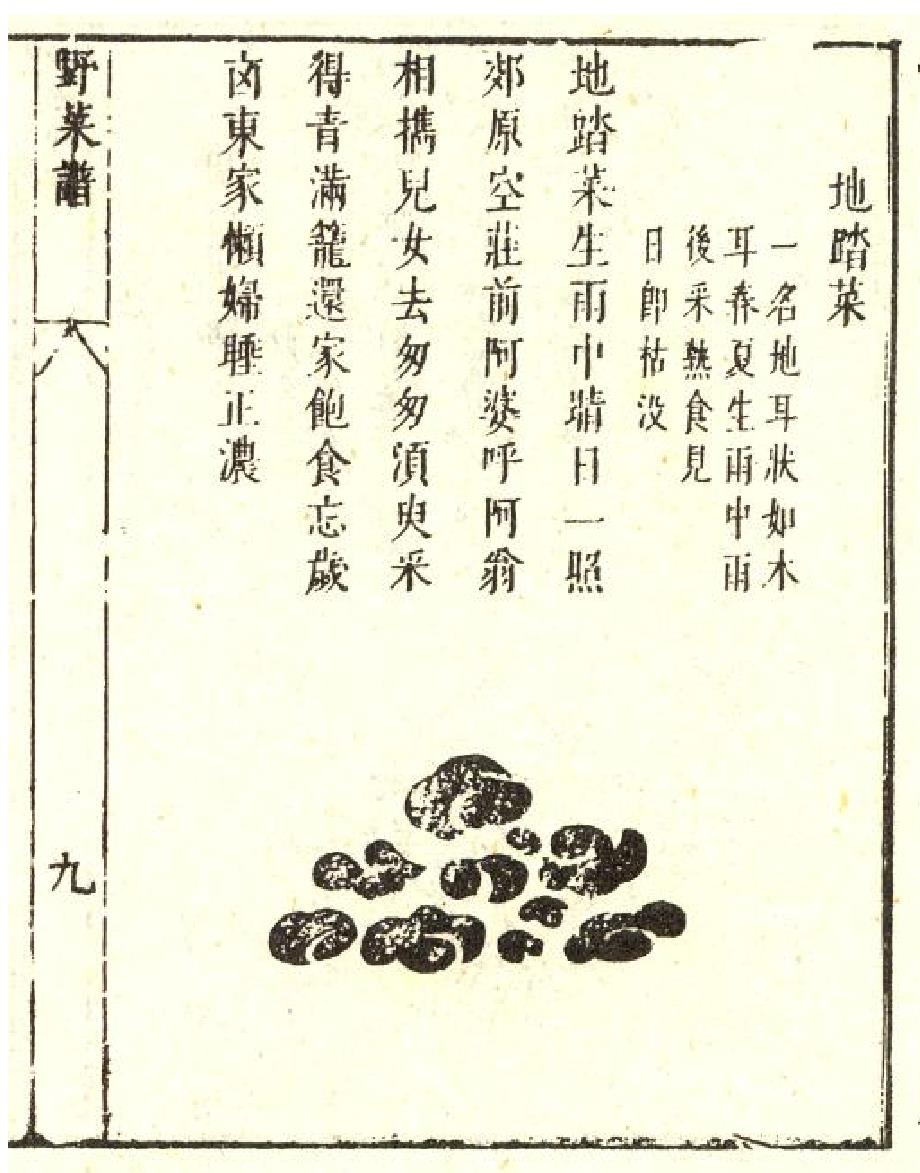 地踏菜
一名地耳狀如木
耳春夏生雨中雨
後采熟食見
日即枯没
地踏菜生雨中晴日一照
郊原空莊前阿婆呼阿翁
相攜兒女去匆匆須臾采
得青滿籠還家飽食忘歲
凶東家懶婦睡正濃
野菜譜
九